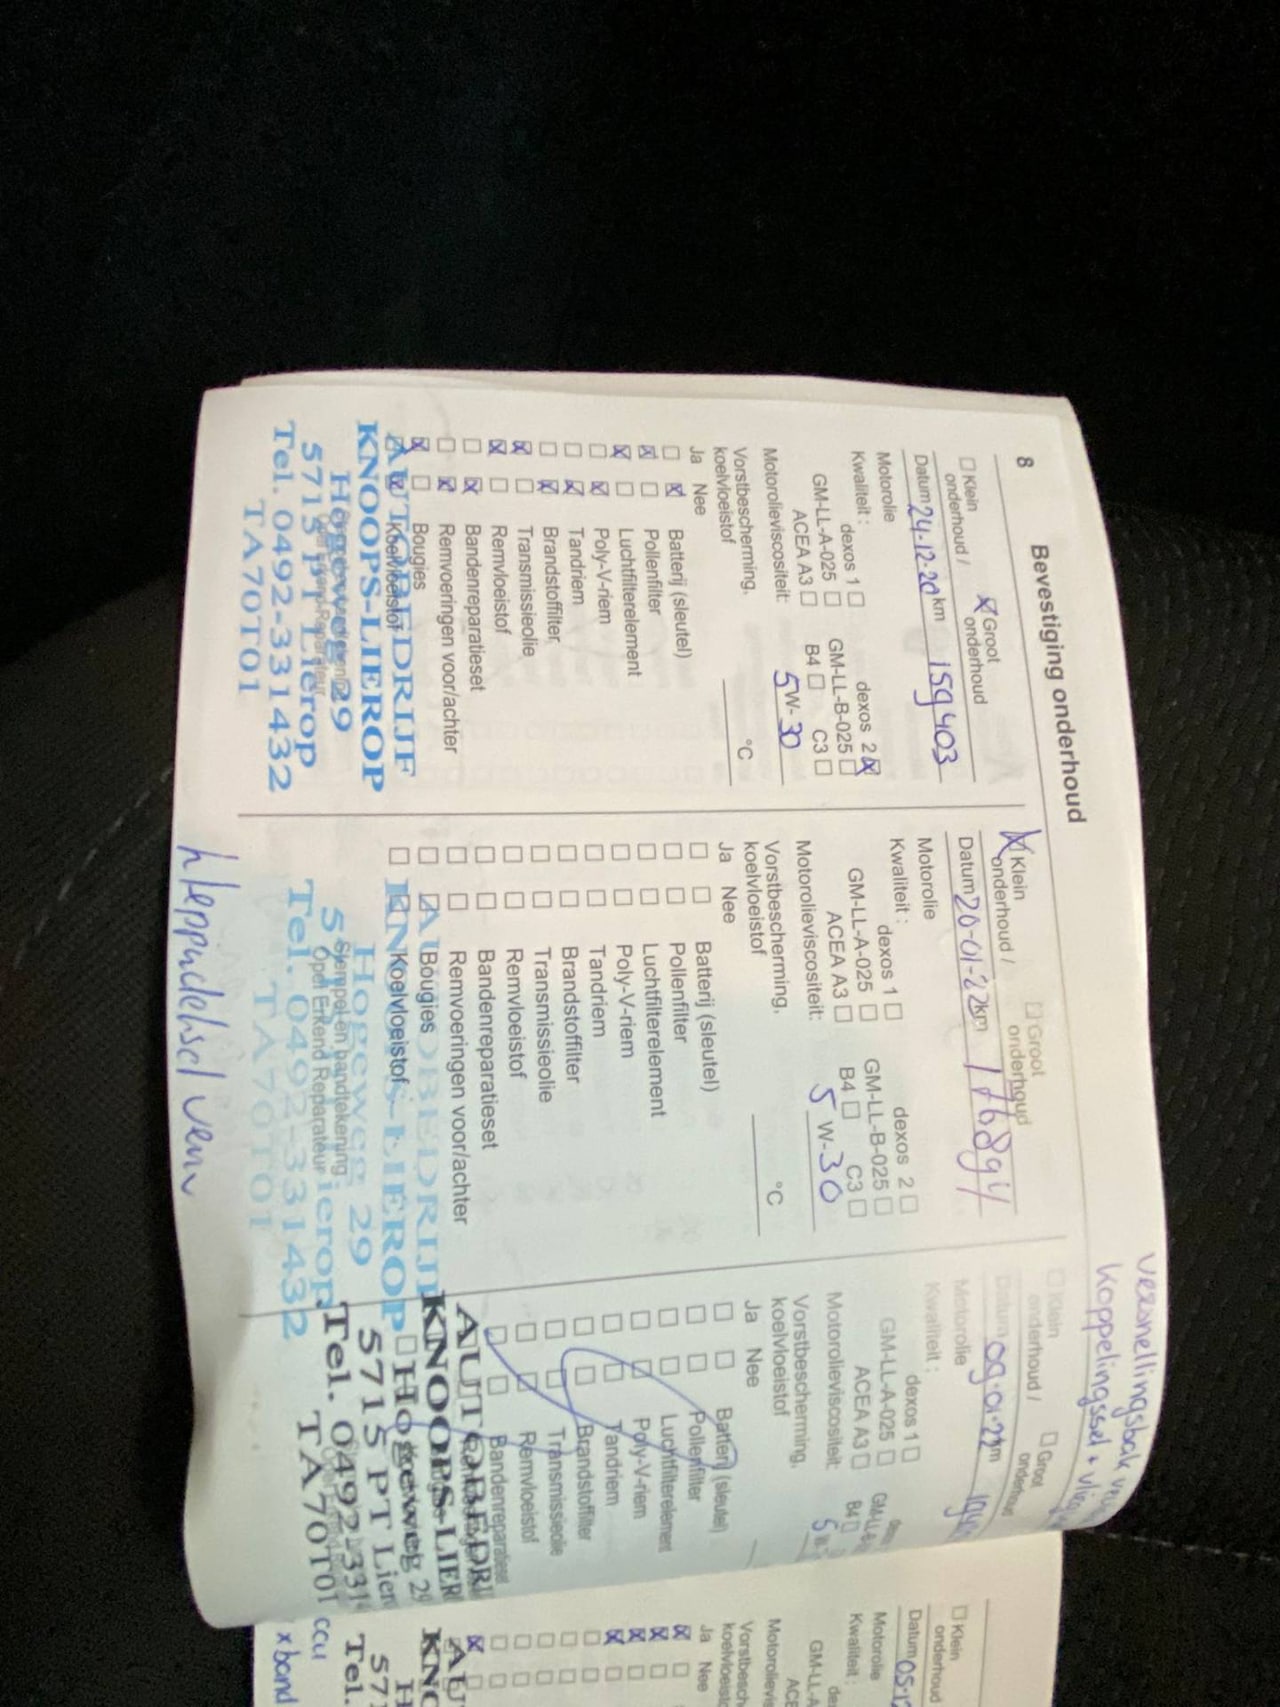 8
Bevestiging onderhoud
Klein
onderhoud /
Groot
onderhoud
Datum 24-12-20 km 159403
Motorolie
Kwaliteit : dexos 1 dexos 2
GM-LL-A-025 GM-LL-B-025
ACEA A3 B4 C3
Motorolieviscositeit: 5W-30
Vorstbescherming,
koelvloeistof °C
Ja Nee
Batterij (sleutel)
Pollenfilter
Luchtfilterelement
Poly-V-riem
Tandriem
Brandstoffilter
Transmissieolie
Remvloeistof
Bandenreparatieset
Remvoeringen voor/achter
Bougies
Koelvloeistof
AUTOBEDRIJF
KNOOPS-LIEROP
Hogeweg 29
5715 PT Lierop
Tel. 0492-331432
TA70T01
Klein
onderhoud /
Groot
onderhoud
Datum 20-01-22 km
Motorolie
Kwaliteit : dexos 1 dexos 2
GM-LL-A-025 GM-LL-B-025
ACEA A3 B4 C3
Motorolieviscositeit: 5W-30
Vorstbescherming,
koelvloeistof °C
Ja Nee
Batterij (sleutel)
Pollenfilter
Luchtfilterelement
Poly-V-riem
Tandriem
Brandstoffilter
Transmissieolie
Remvloeistof
Bandenreparatieset
Remvoeringen voor/achter
Bougies
Koelvloeistof
Stempel en handtekening
Opel Erkend Reparateur
AUTOBEDRIJF
KNOOPS-LIEROP
Hogeweg 29
Lierop
Tel. 0492-331432
TA70T01
koppelingsset +
Klein
onderhoud /
Groot
onderhoud
Datum
Motorolie
Kwaliteit : dexos 1
GM-LL-A-025
ACEA A3 B4
Motorolieviscositeit:
Vorstbescherming,
koelvloeistof
Ja Nee
Batterij (sleutel)
Pollenfilter
Luchtfilterelement
Poly-V-riem
Tandriem
Brandstoffilter
Transmissieolie
Remvloeistof
Bandenreparatieset
AUTOBEDRI
KNOOPS-LIER
Hogeweg 29
5715 PT Lier
Tel. 0492-331
TA70T01
Klein
onderhoud
Datum 05-12
Motorolie
Kwaliteit :
GM-LL-A
Ja Nee
AU
KNO
H
571
Tel.
ccu